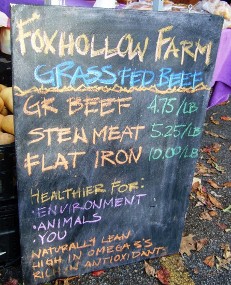 FOXHOLLOW FARM
GRASS FED BEEF
GR BEEF 4.75/LB
STEW MEAT 5.25/LB
FLAT IRON 10.09/LB
HEALTHIER FOR:
·ENVIRONMENT
·ANIMALS
·YOU
NATURALLY LEAN
HIGH IN OMEGA 3'S
RICH IN ANTIOXIDANT